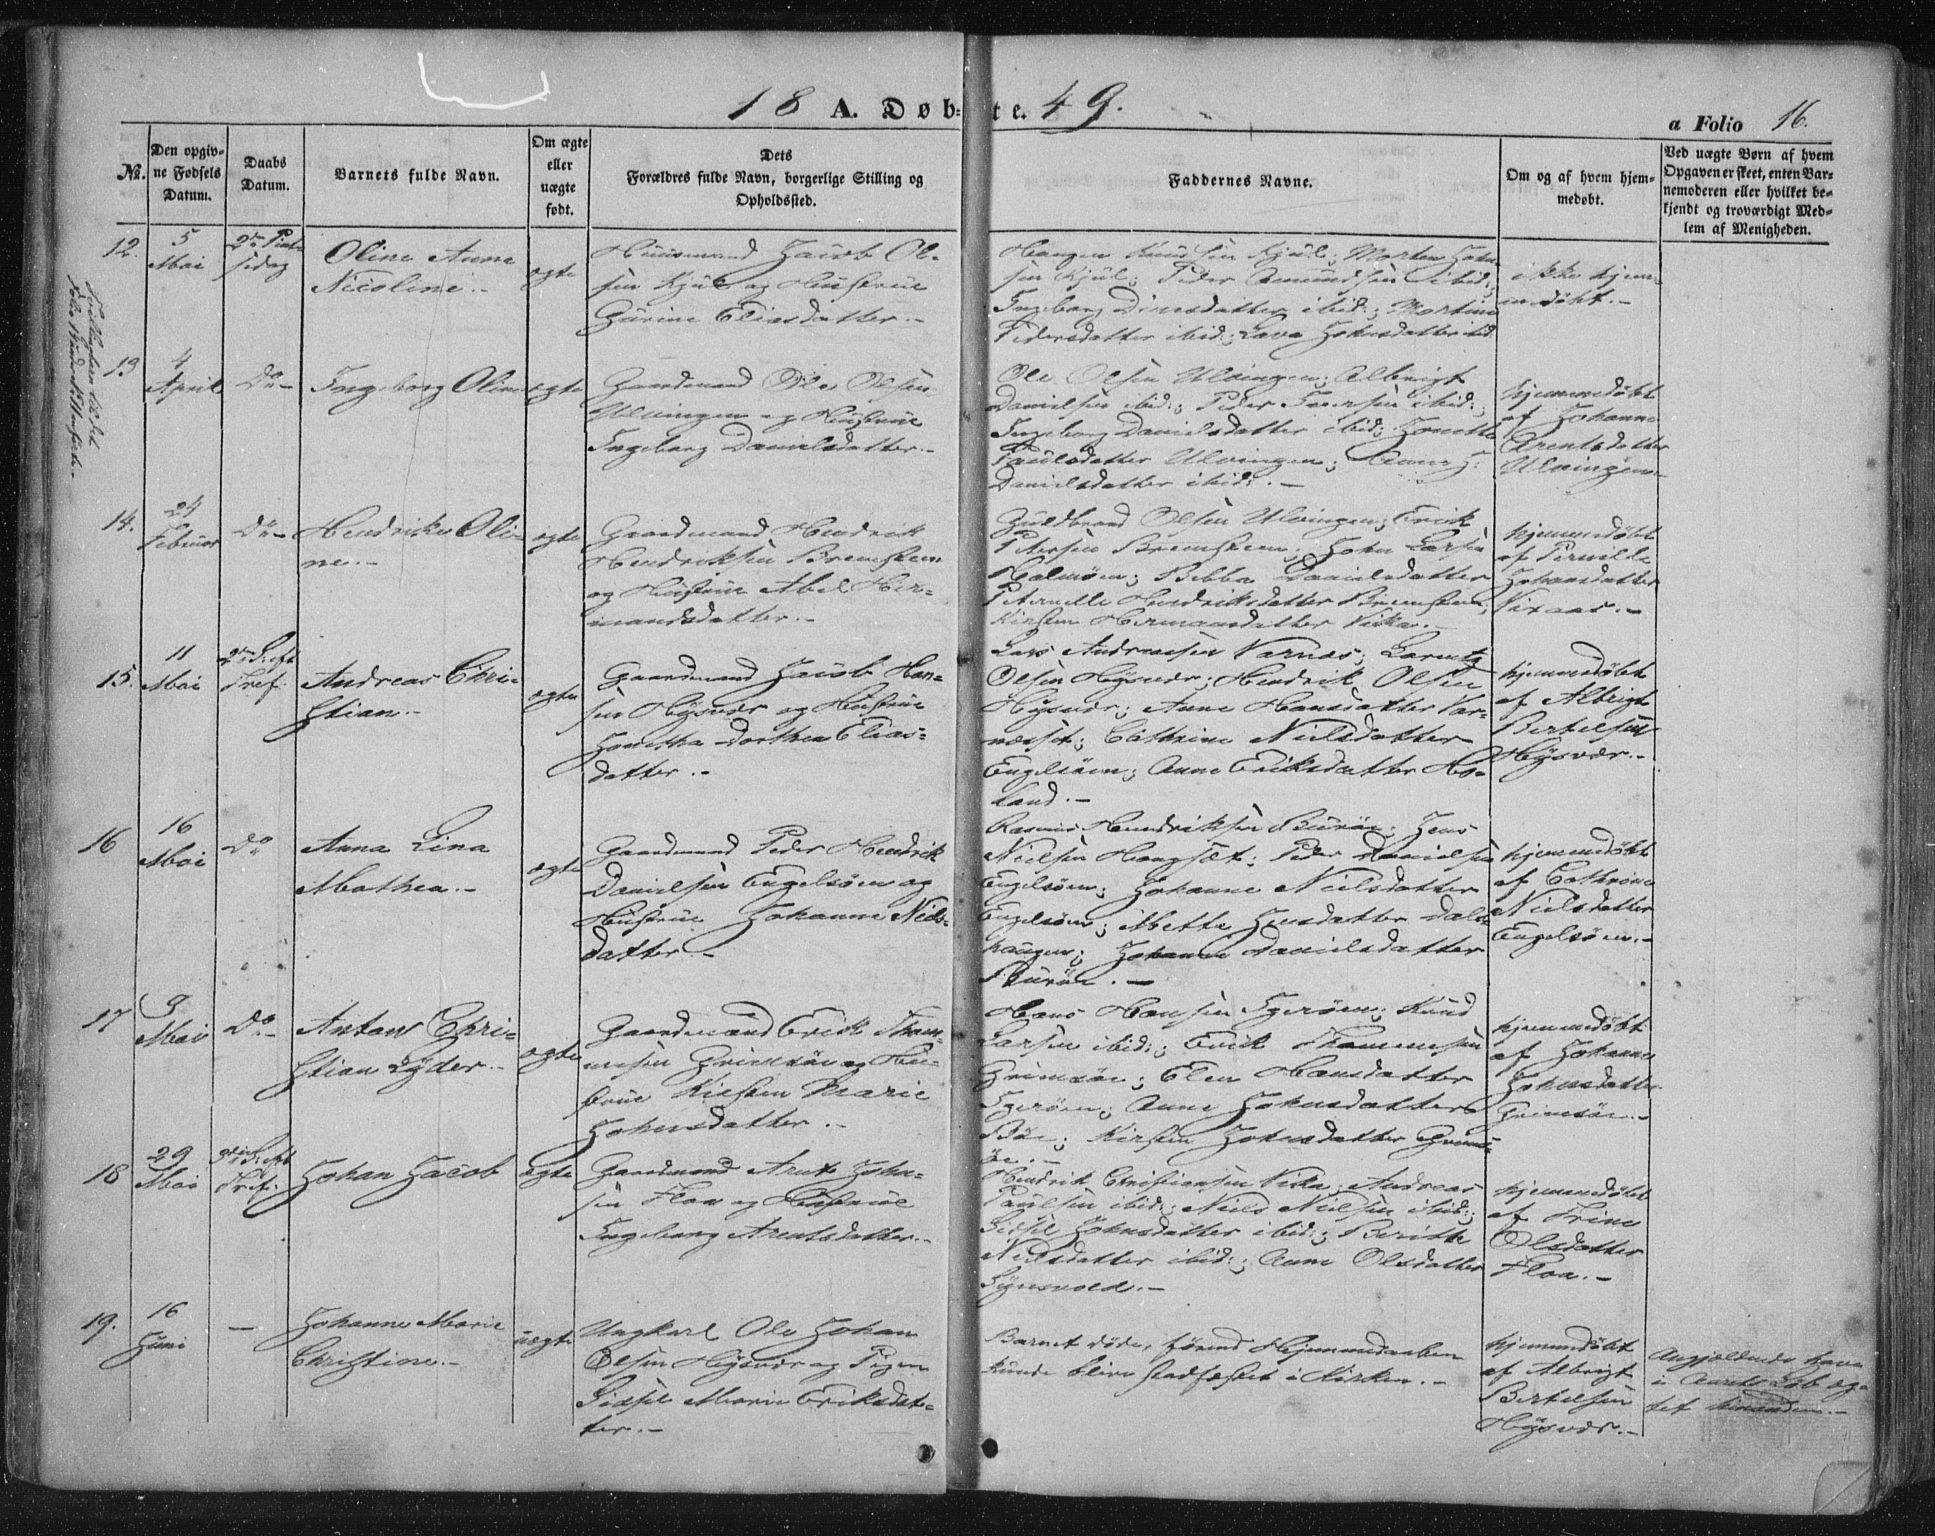 18 A. Døbte. 49.
a Folio 16.
No.
Den opgivne Fødsels Datum.
Daabs Datum.
Barnets fulde Navn.
Om ægte eller uægte født.
Dets Forældres fulde Navn, borgerlige Stilling og Opholdssted.
Faddernes Navne.
Om og af hvem hjemmedøbt.
Ved uægte Børn af hvem Opgaven er skeet, enten Barnemoderen eller hvilket bekjendt og troværdigt Medlem af Menigheden.
12.
5
Mai
2den Pint-
sedag
Oline Anne
Nicoline.-
ægte
Huusmand Jacob Ol-
sen Kjul og Hustrue
Gurine Eliasdatter.-
Knudsen Kjul; Morten John-
sen Kjul; Peder Amundsen ibid;
Ingeborg Dinesdatter ibid; Martine
Pedersdatter ibid; Lava Johnsdatter ibid
ikke hjem-
medøbt.-
13
4
April
Do-
Ingeborg Oline
ægte
Gaardmand Ole Olsen
Ulvingen og Hustrue
Ingeborg Danielsdatter.-
Ole Olsen Ulvingen; Albrigt
Danielsen ibid:; Peder ibid:;
Ingeborg Danielsdatter ibid; Jonetta
Paulsdatter Ulvingen; Anne
Danielsdatter ibid:.-
hjemmedøbt
af Johanne
Arentsdatter
Ulvingen.-
14.
24
Februar
Do-
Hendrikke Oli-
ne.-
ægte
Gaardmand Hendrik
Hendriksen Bremsteen
og Hustrue Abel Her-
mandsdatter.-
Guldbrand Olsen Ulvingen; Erick
Petersen Bremsteen; John Larsen
Halmøen; Bibba Danielsdatter
Peternille Hendriksdatter Bremsteen;
Kirsten Hermansdatter Vika.-
hjemmedøbt
af Pernille
Johansdatter
15.
11
Mai
2den S. eft
Tref.
Andreas Chri-
stian.-
ægte
Gaardmand Jacob Han-
sen Hysvær og Hustrue
Jonetta Dorthea Elias-
datter.-
Lars Andreasen Varnæs; Larentz
Olsen Hysvær; Hendrik Olsen
Hysvær; Anne Hansdatter Var-
næsset; Cathrine Nielsdatter
Engelsøen; Anne Eriksdatter Ho-
land.-
hjemmedøbt
af Albrigt
Bertelsen
Hysvær.-
16
16
Mai
Do
Anna Lina
Mathea.-
ægte
Gaardmand Peder Hendrik
Danielsen Engelsøen og
Hustrue Johanne Niels-
datter.-
Rasmus Hendriksen Burøe; Jens
Nielsen Haugsæt; Peder Danielsen
Engelsøen; Johanne Nielsdatter
Engelsøen; Mette Jensdatter Dals-
haugen; Johanne Danielsdatter
Burøe.-
hjemmedøbt
af Cathrine
Nielsdatter
Engelsøen.-
17
9
Mai
Do-
Anton Chri-
stian Lyder.-
ægte
Gaardmand Erick Thom-
mesen Grimsøe og Hu-
strue Kirsten Marie
Johnsdatter.-
Hans Hansen Igerøen; Knud
Larsen ibid:; Erick Thommesen
Grimsøe; Elen Hansdatter
Igerøen; Anne Johnsdatter
Bøe; Kirsten Johnsdatter Grims-
øe.-
hjemmedøbt
af Johanne
Johnsdatter
Grimsøe.-
18
29
Mai
3die S. eft
Tref.
Johan Jacob
ægte
Gaardmand Arnt John-
sen Floa og Hustrue
Ingeborg Arentsdatter.-
Hendrik Christiansen Vika; Andreas
Paulsen ibid:; Niels Nielsen ibid:;
Sidsel Johnsdatter ibid:; Berith
Nielsdatter ibid:; Anne Olsdatter
hjemmedøbt
af Trine
Olsdatter
Floa.-
19.
16
Juni
-
Johanne Marie
Christine.-
uægte
Ungkarl Ole Johan
Olsen Hysvær og Pigen
Sidsel Marie Eriksdat-
ter.-
Barnet døde, førend Hjemmedaaben
kunde blive stadfæstet i Kirken.-
hjemmedøbt
af Albrigt
Bertelsen
Hysvær.-
Angjældende have
i Aarets Løb æg-
tet hinanden.-